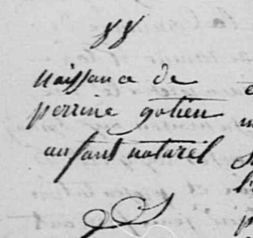 88
naissance de
perrine gotien
anfant naturel